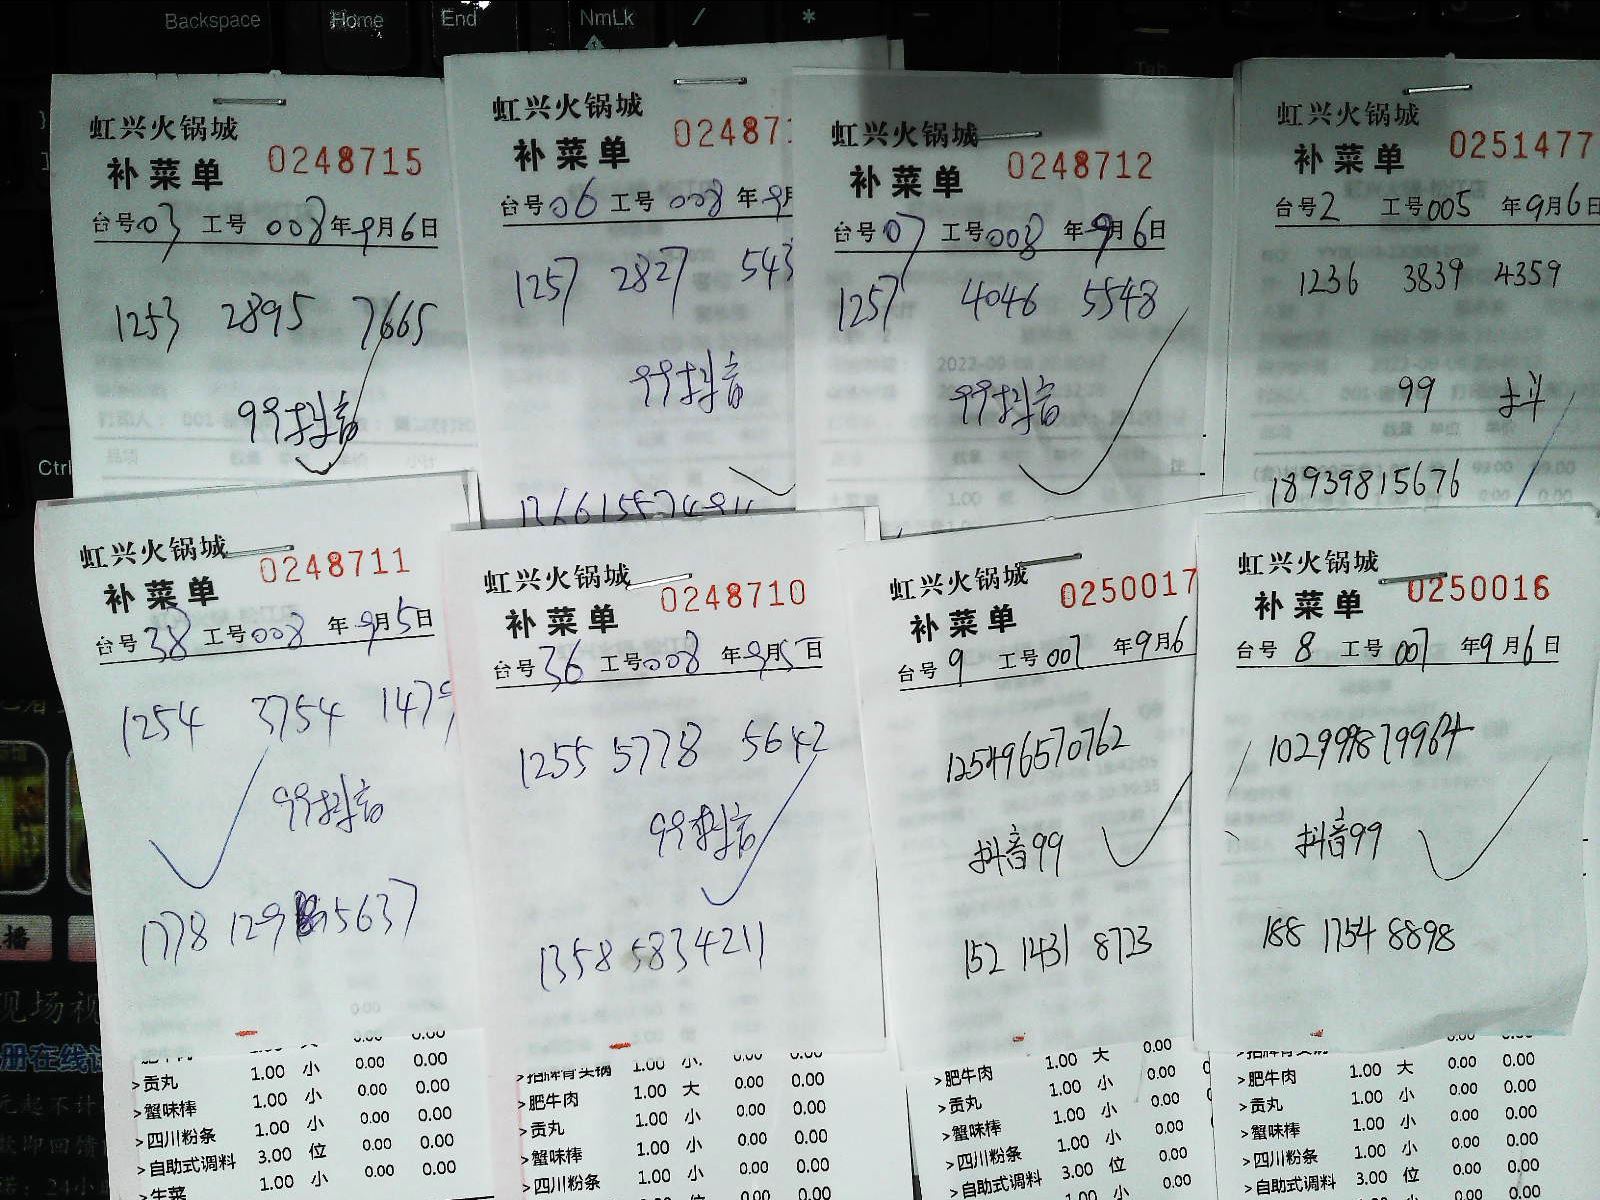 Backspace Home End NmLk / *
Ctrl
虹兴火锅城
补菜单 0248715
台号03 工号008 年9月6日
1253 2895 7665
99抖音
虹兴火锅城
补菜单 02487
台号06 工号008 年9月
1257 2827 543
99抖音
虹兴火锅城
补菜单 0248712
台号07 工号008 年9月6日
1257 4046 5548
99抖音
虹兴火锅城
补菜单 0251477
台号2 工号005 年9月6日
1236 3839 4359
99 抖
18939815676
虹兴火锅城
补菜单 0248711
台号38 工号008 年9月5日
1254 3754 1475
99抖音
1778 129 5637
>贡丸 1.00 小 0.00 0.00
>蟹味棒 1.00 小 0.00 0.00
>四川粉条 1.00 小 0.00 0.00
>自助式调料 3.00 位 0.00 0.00
>生菜 1.00 小 0.00 0.00
虹兴火锅城
补菜单 0248710
台号36 工号008 年9月5日
1255 5778 5642
99抖音
1358 5834211
>招牌骨头锅 1.00 小 0.00 0.00
>肥牛肉 1.00 大 0.00 0.00
>贡丸 1.00 小 0.00 0.00
>蟹味棒 1.00 小 0.00 0.00
>四川粉条 1.00 小 0.00 0.00
虹兴火锅城
补菜单 0250017
台号9 工号007 年9月6
125496570762
抖音99
152 1431 8723
>肥牛肉 1.00 大 0.00
>贡丸 1.00 小 0.00
>蟹味棒 1.00 小 0.00
>四川粉条 1.00 小 0.00
>自助式调料 3.00 位 0.00
虹兴火锅城
补菜单 0250016
台号8 工号007 年9月6日
102999879964
抖音99
188 1754 8898
>肥牛肉 1.00 大 0.00 0.00
>贡丸 1.00 小 0.00 0.00
>蟹味棒 1.00 小 0.00 0.00
>四川粉条 1.00 小 0.00 0.00
>自助式调料 3.00 位 0.00 0.00